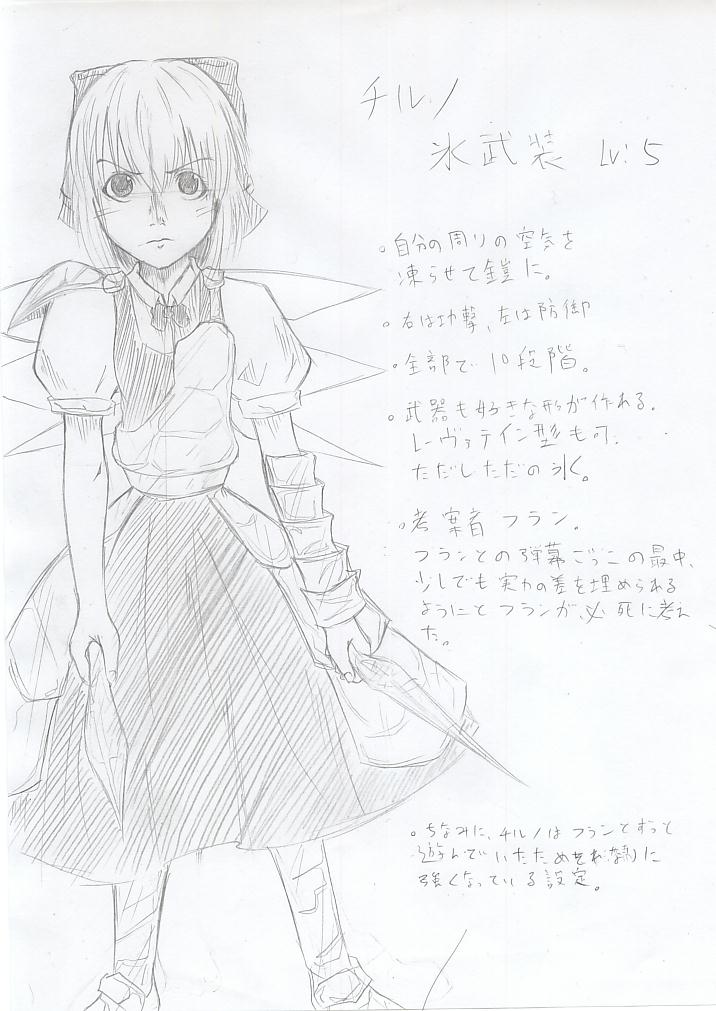 チルノ
氷武装 Lv:5
。自分の周りの空気を
凍らせて鎧に。
。右は攻撃、左は防御
。全部で10段階。
。武器も好きな形が作れる。
レーヴァテイン型も可。
ただしただの氷。
。考案者 フラン。
フランとの弾幕ごっこの最中、
少しでも実力の差を埋められる
ようにとフランが、必死に考え
た。
。ちなみに、チルノはフランとずっと
遊んでいたためそれなりに
強くなっている設定。